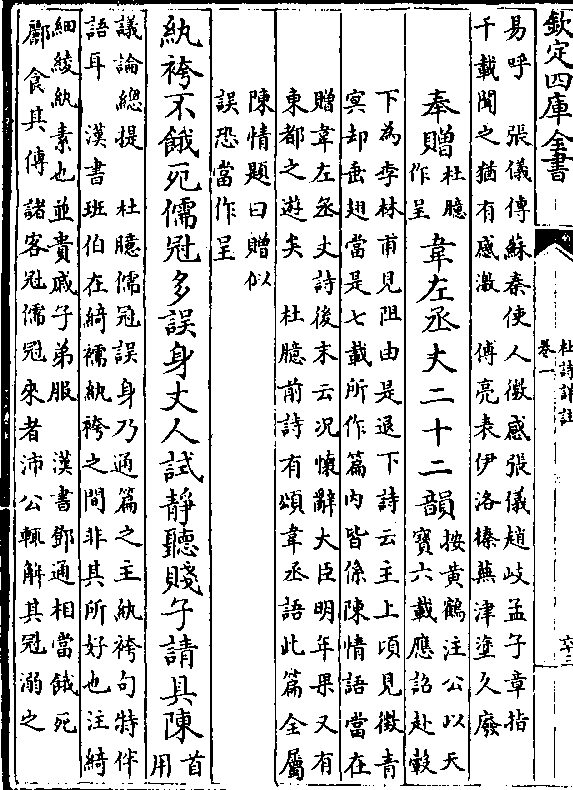 欽定四庫全書
杜詩詳註
卷一
六十三
易呼　張儀傳蘇秦使人微感張儀趙岐孟子章指
千載聞之猶有感激　傅亮表伊洛榛蕪津塗久廢
奉贈杜臆作呈韋左丞丈二十二韻按黄鶴注公以天寶六載應詔赴轂
下為李林甫見阻由是退下詩云主上頃見徵青
冥却垂翅當是七載所作篇内皆係陳情語當在
贈韋左丞丈詩後末云况懷辭大臣明年果又有
東都之遊矣　杜臆前詩有頌韋丞語此篇全屬
陳情題曰贈似
誤恐當作呈
紈袴不餓死儒冠多誤身丈人試靜聽賤子請具陳首用
議論總提　杜臆儒冠誤身乃通篇之主紈袴句特伴
語耳　漢書班伯在綺襦紈袴之間非其所好也注綺
細綾紈素也並貴戚子弟服　漢書鄧通相當餓死
酈食其傳諸客冠儒冠來者沛公輒解其冠溺之